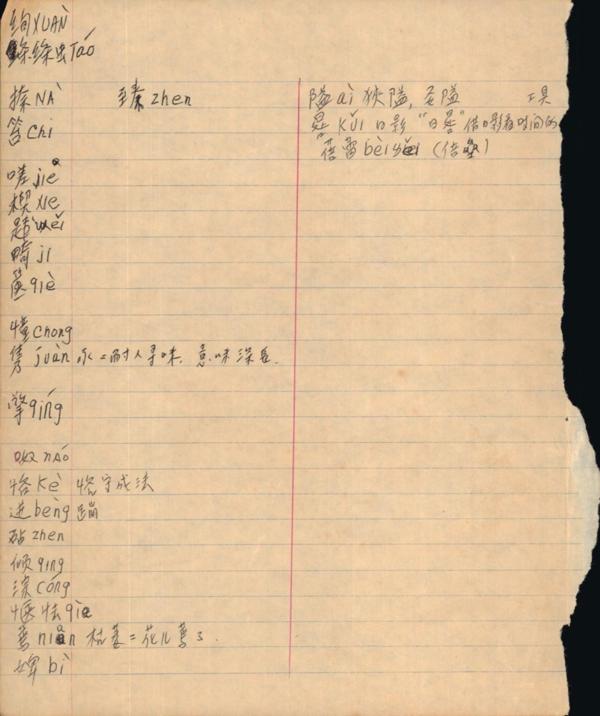 绚XUÀN
绦绦虫Tāo
捺NÀ 臻zhen
笞chi
嗟jiē
楔xie
韪wěi
畸ji
箧qiè
憧chong
隽juàn 永=耐人寻味,意味深长.
擎qíng
呶NÁO
恪Kè 恪守成法
迸bèng 蹦
砧zhen
倾qing
淙cóng
惬怯qiè
蔫niān 枯萎=花儿蔫了.
婢bì
隘ài 狭隘, 工具
晷KǓi 日影 "日晷"借日影看时间的
蓓蕾bèi lěi (倍垒)